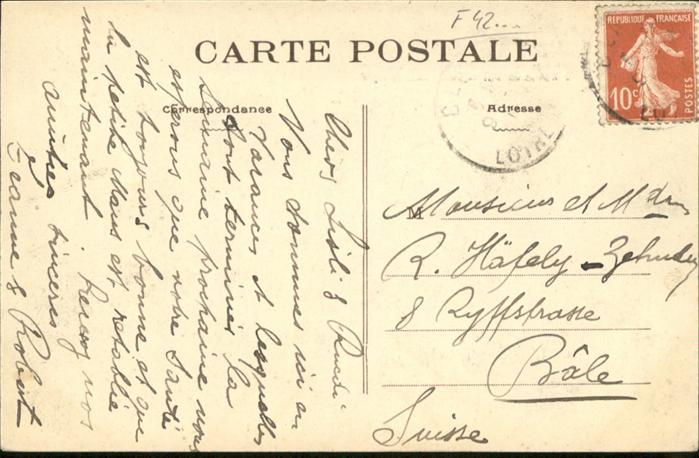 F 42...
CARTE POSTALE
RÉPUBLIQUE FRANÇAISE
10c
POSTES
Correspondance
Adresse
LOIRE
13
Chers Lisli & Ruedi
Nous sommes ici en
vacances et lesquelles
sont terminés la
semaine prochaine nous
espérons que votre santé
est toujours bonne et que
la petite Maus est rétablie
maintenant. Recevez nos
amitiés sincères
Jeanne & Robert
M
Monsieur et Mdm
R. Häfely-Zehnder
8 Ryffstrasse
Bâle
Suisse